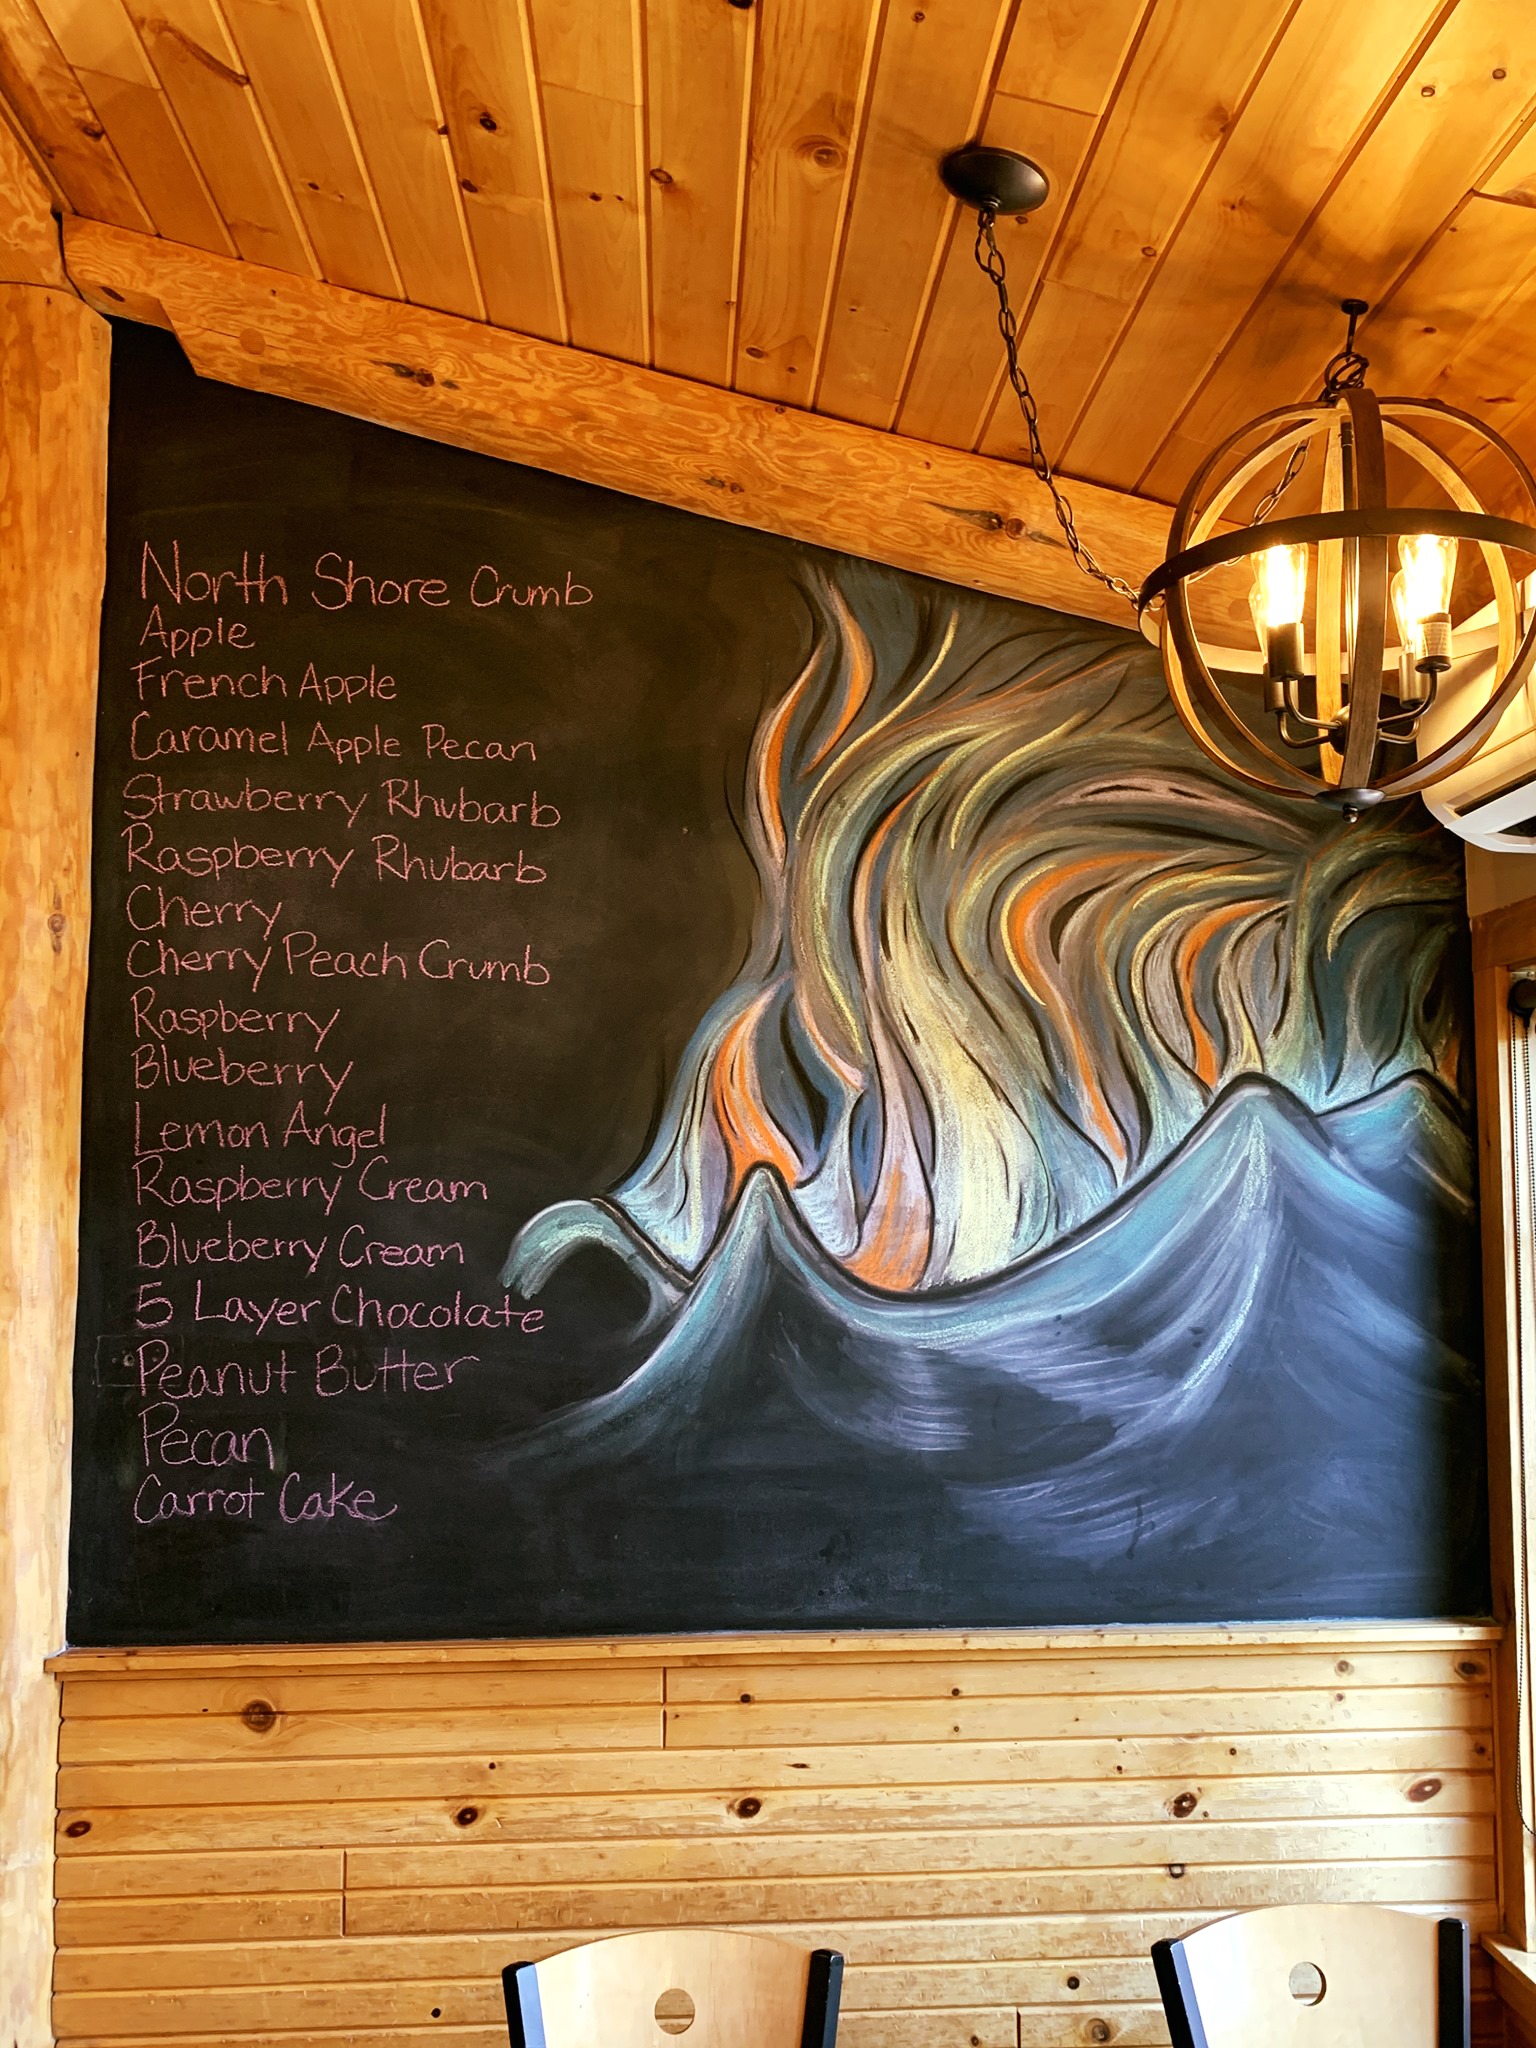 North Shore Crumb
Apple
French Apple
Caramel Apple Pecan
Strawberry Rhubarb
Raspberry Rhubarb
Cherry
Cherry Peach Crumb
Raspberry
Blueberry
Lemon Angel
Raspberry Cream
Blueberry Cream
5 Layer Chocolate
Peanut Butter
Pecan
Carrot Cake